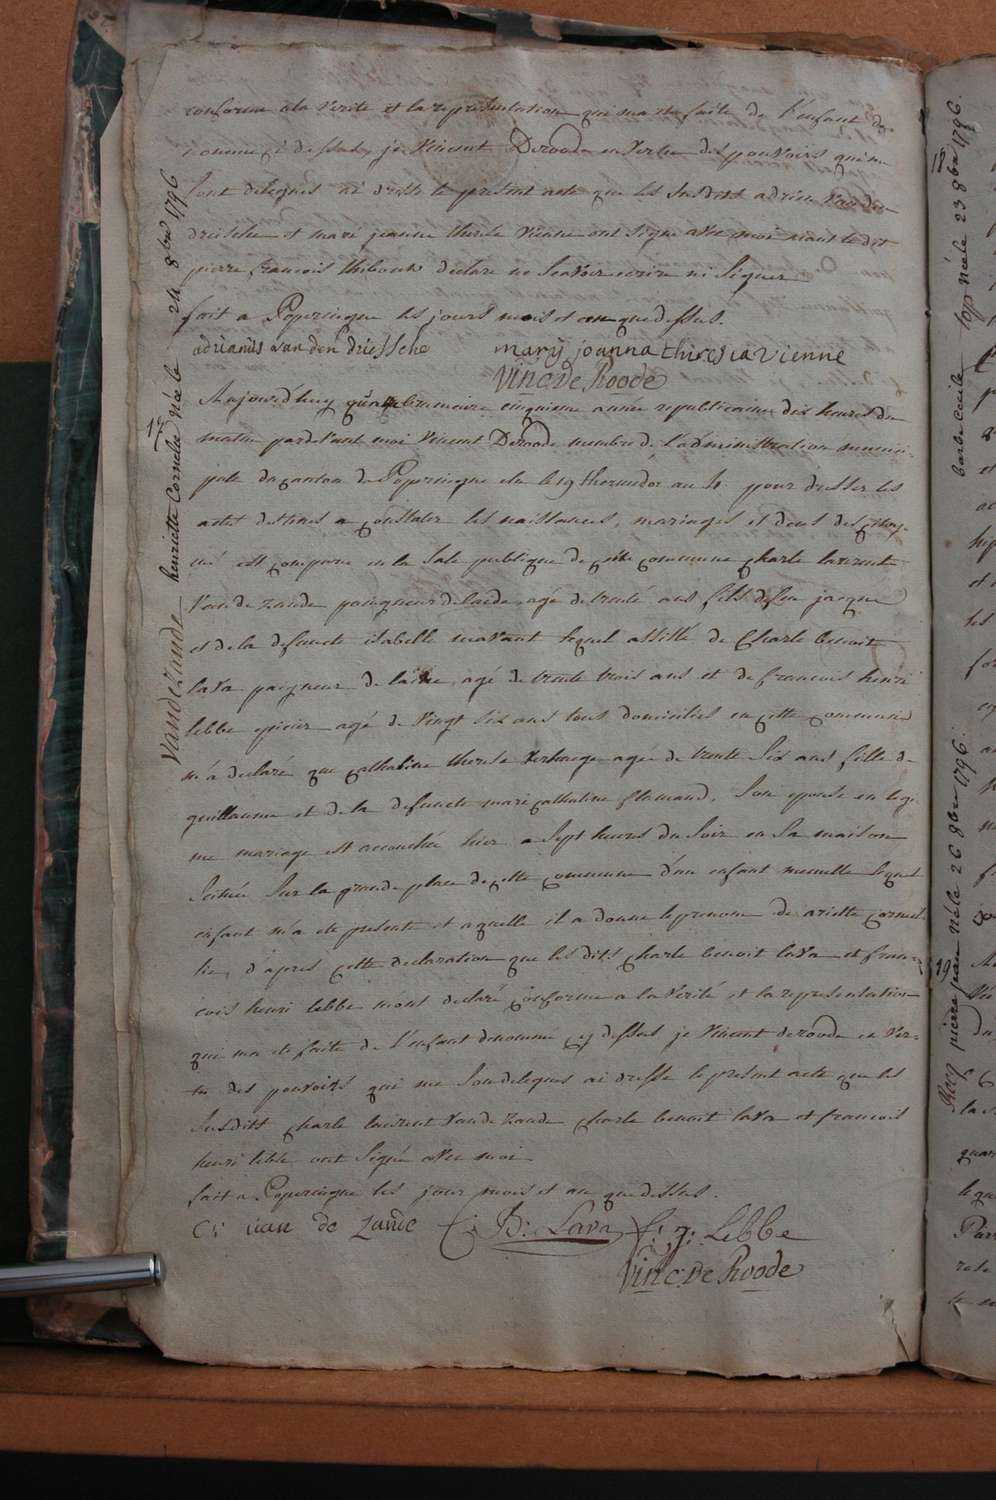 conforme a la verite et la representation qui ma ete faite de l'enfant de
nommé ci dessus, je Vincent Deroode en vertu des pouvoirs qui me
sont delegues ai dressé le present acte que les susdits adrien vanden
driessche et marie jeanne therese vienne ont signe avec moi aiant le dit
pierre francois thibout declare ne scavoir ecrire ni signer
fait a Poperingue les jours mois et an que dessus.
adrianus van den driessche mary joanna thiresia vienne
Vinc. De Roode
17
Vandezande henriette Cornelie née le 24 8bre 1796
Aujourd'huy quatre brumaire cinquieme année republicaine dix heures du
matin pardevant moi Vincent Deroode membre de l'administration munici-
pale du canton de Poperingue elu le 19 thermidor an 4 pour dresser les
actes destines a constater les naissances, mariages et deces des citoy-
ens est comparu en la sale publique de cette commune charle laurent
vande zande paigneur de laine, agé de trente ans fils de feu jacque
et de la defuncte isabelle lequel assisté de Charle benoit
lava paigneur de laine, agé de trente trois ans et de francois henri
lebbe epicier agé de vingt six ans tous domicilies en cette commune
m'a declaré que catharine therese verhaege agée de trente six ans fille de
guillaume et de la defuncte marie catharine flamand, son epouse en legi-
me mariage est accouchée hier a sept heures du soir en sa maison
scituée sur la grande place de cette commune d'un enfant femelle lequel
enfant m'a ete presente et aquelle il a donne le prenom de ariette cornel-
lie, d'apres cette declaration que les dits charle benoit lava et fran-
cois henri lebbe mont declaré conforme a la verité et la representation
qui ma ete faite de l'enfant denomme cy dessus je Vincent deroode en ver-
tu des pouvoirs qui me son delegues ai dressé le present acte que les
susdits charle laurent vande zande charle benoit lava et francois
henri lebbe ont signé avec moi
fait a Poperingue les jour mois et an que dessus.
C: van de zande C: B: Lava f: j: Lebbe
Vinc. De Roode
18
barbe cecile top née le 23 8bre 1796.
19
pierre jean né le 26 8bre 1796.